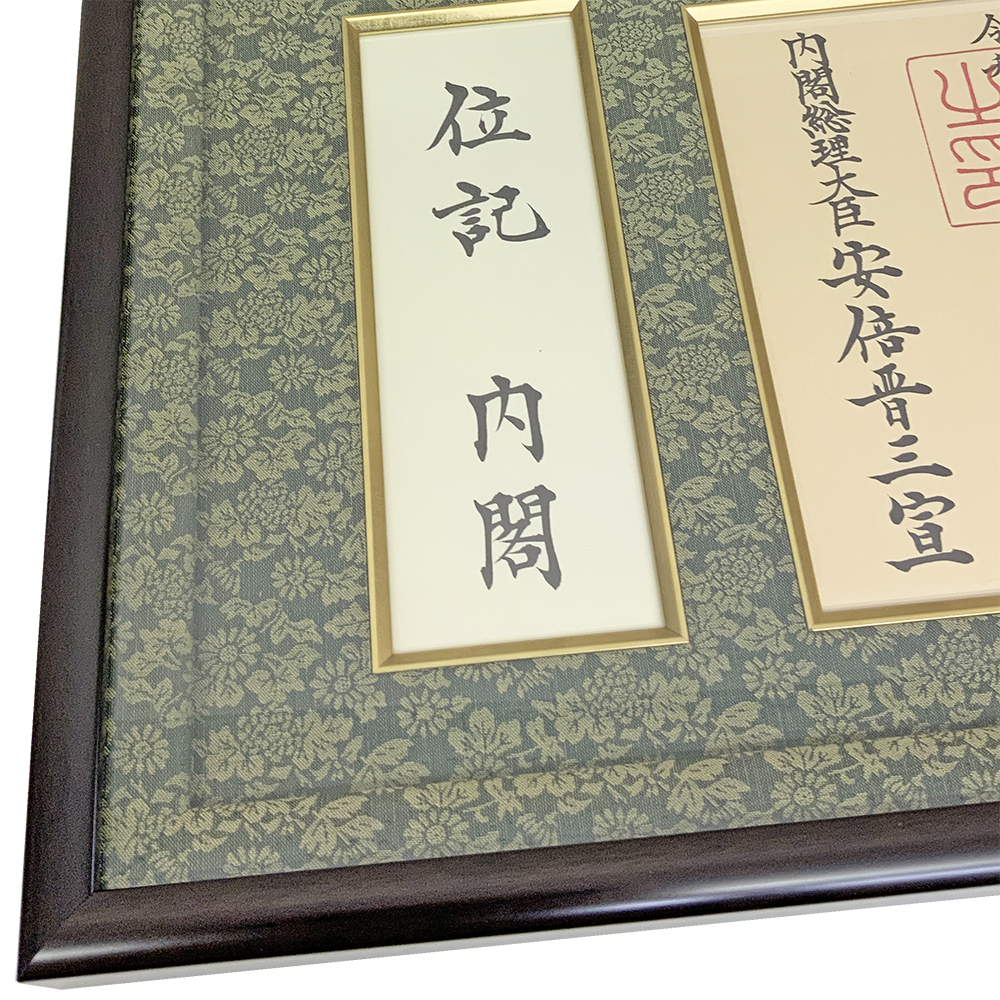 令和
内閣総理大臣安倍晋三宣
位記 内閣